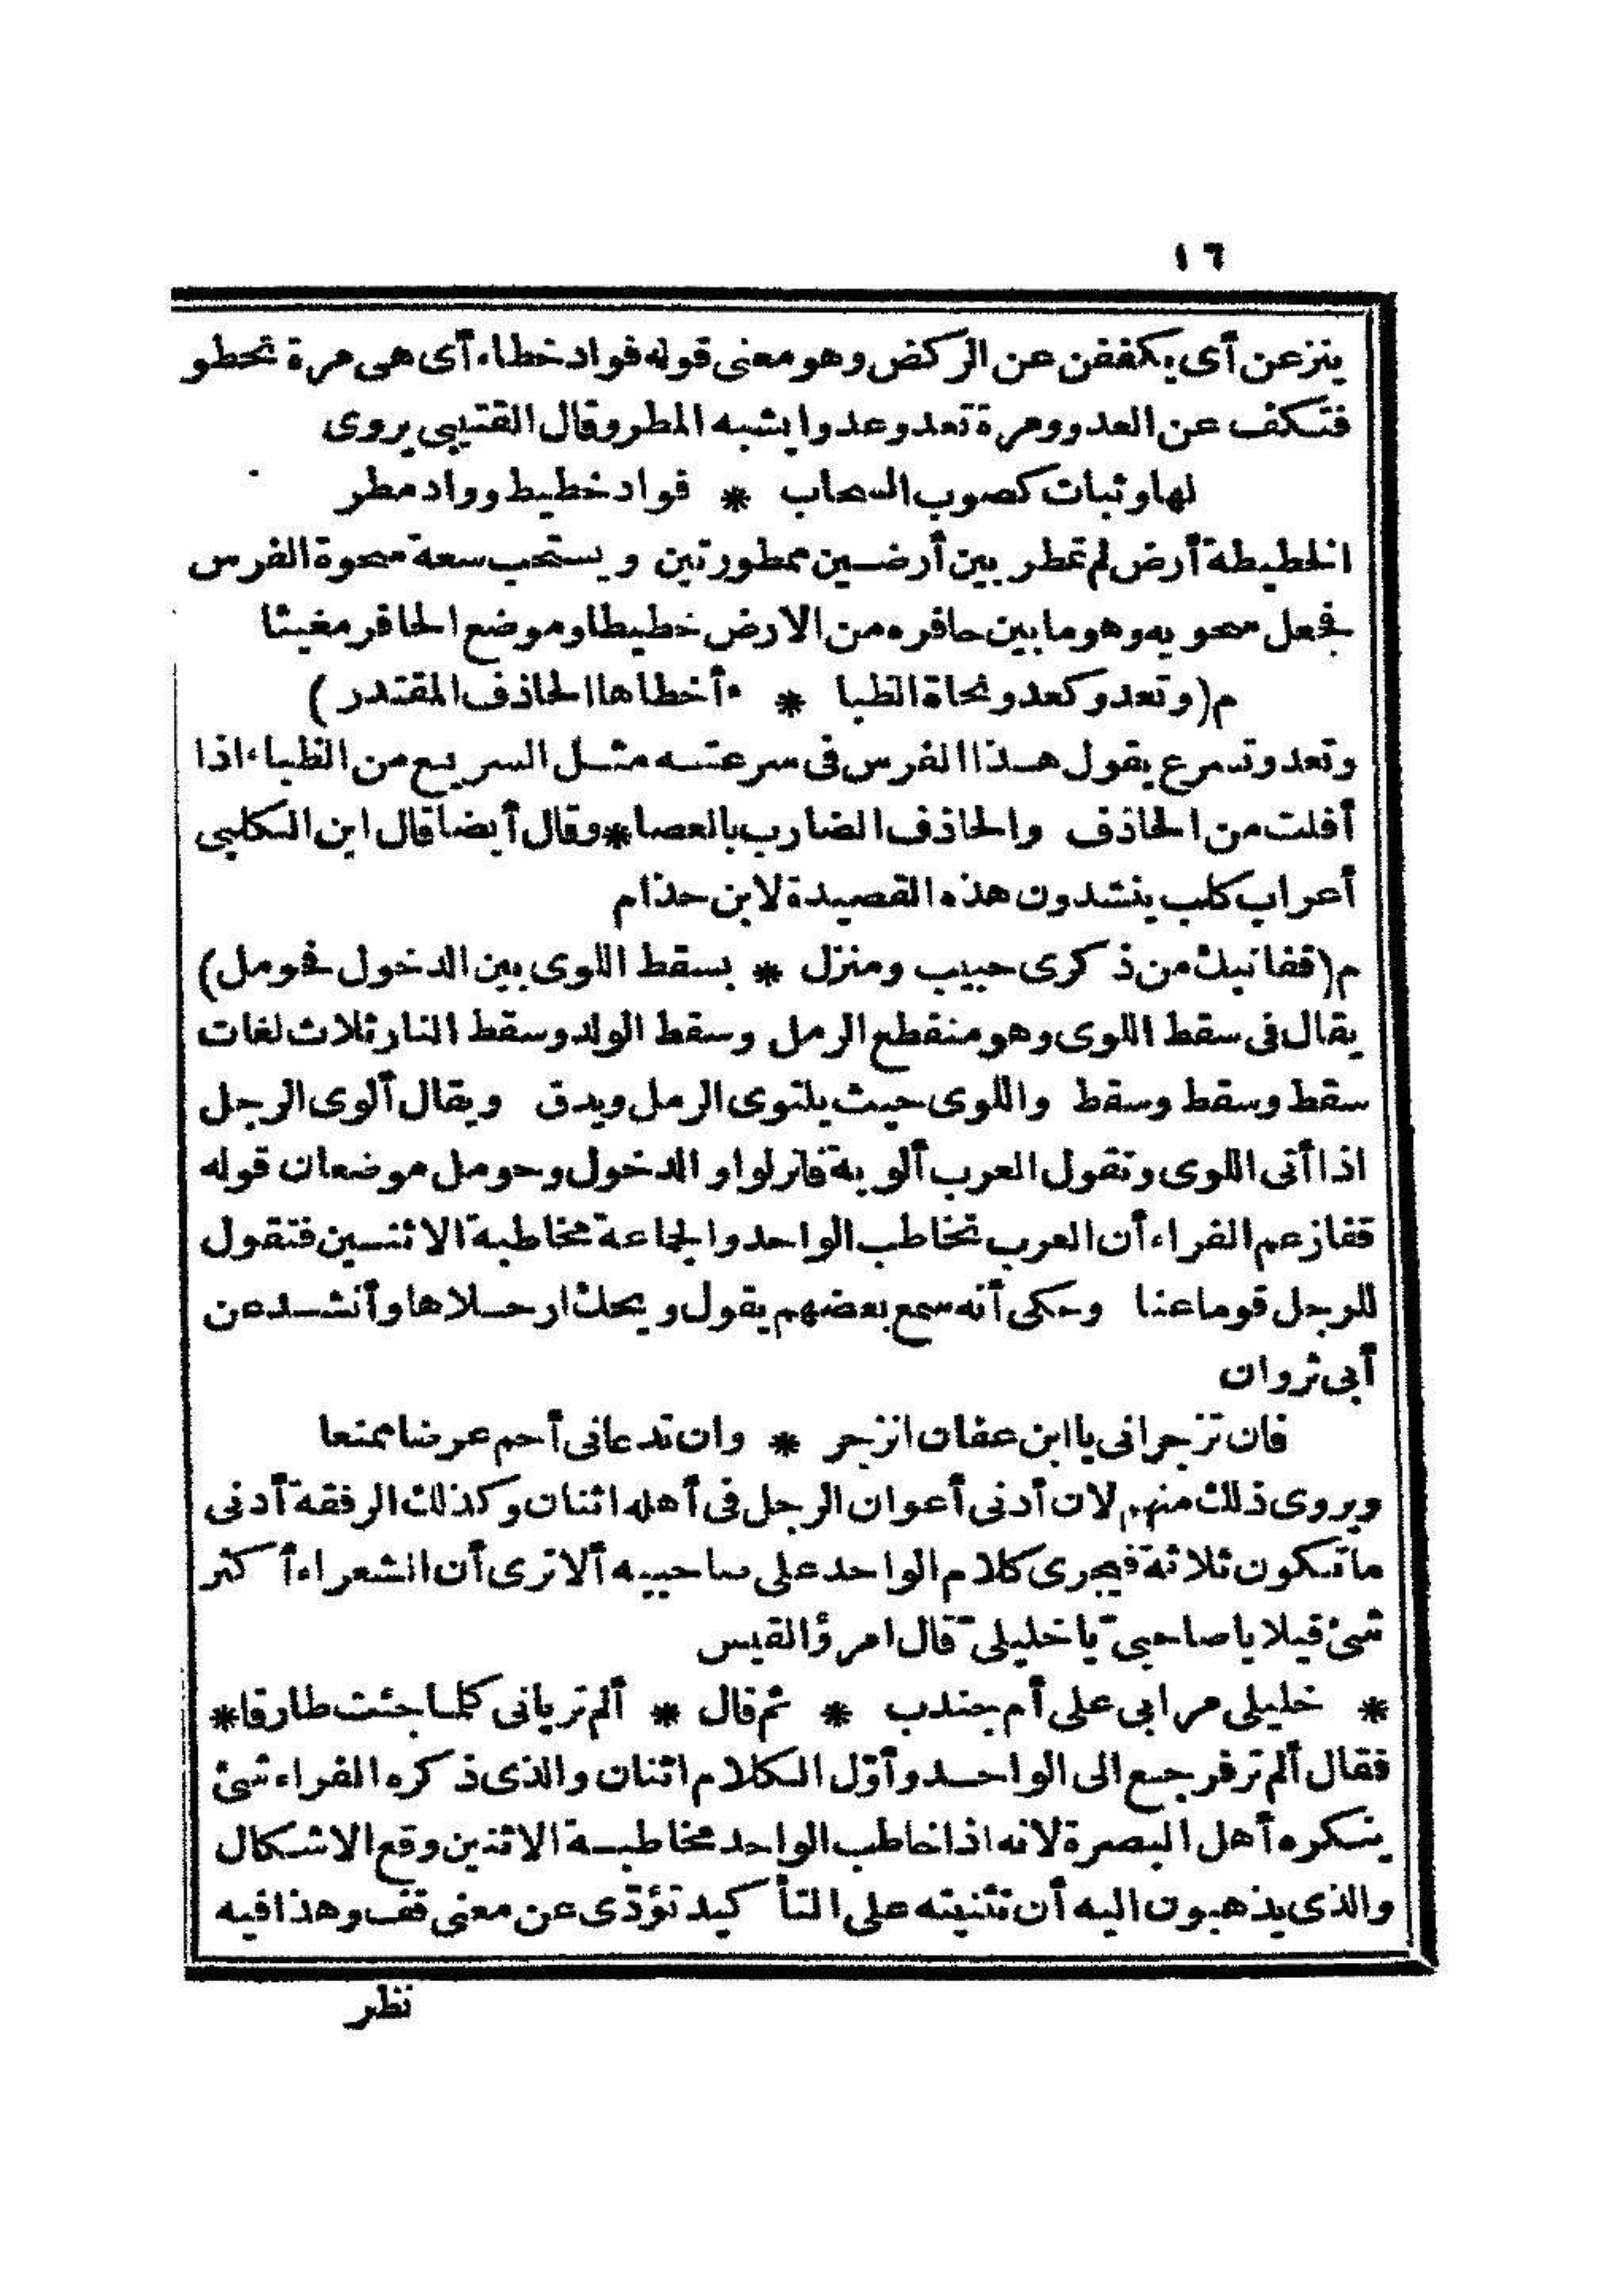 ١٦
ينزعن أى يكففن عن الركض وهو معنى قوله فواد خطاء أى هى مرة تخطو
فتكف عن العدو ومرة تعدو عدوا يشبه المطر وقال القتيبى يروى
لها وثبات كصوب السحاب * فواد خطيط وواد مطر
الخطيطة أرض لم تمطر بين أرضين ممطورتين ويستحب سعة محوة الفرس
فجعل محويه وهو ما بين حافره من الارض خطيطا وموضع الحافر مغيثا
م (وتعدو كعدو نجاة الظبا * ء أخطاها الحاذف المقتدر)
وتعدو تسرع يقول هذا الفرس فى سرعته مثل السريع من الظباء اذا
أفلت من الحاذف والحاذف الضارب بالعصا * وقال أيضا قال ابن الكلبى
أعراب كلب ينشدون هذه القصيدة لابن حذام
م (قفا نبك من ذكرى حبيب ومنزل * بسقط اللوى بين الدخول فحومل)
يقال فى سقط اللوى وهو منقطع الرمل وسقط الولد وسقط النار ثلاث لغات
سقط وسقط وسقط واللوى حيث يلتوى الرمل ويدق ويقال ألوى الرجل
اذا أتى اللوى وتقول العرب ألويتم فانزلوا والدخول وحومل موضعان قوله
قفا زعم الفراء أن العرب تخاطب الواحد والجماعة مخاطبة الاثنين فتقول
للرجل قوما عنا وحكى أنه سمع بعضهم يقول ويحك ارحلاها وأنشد عن
أبى ثروان
فان تزجرانى يا ابن عفان انزجر * وان تدعانى أحم عرضا ممنعا
ويروى ذلك منهم لان أدنى أعوان الرجل فى أهله اثنان وكذلك الرفقة أدنى
ما تكون ثلاثة فيجرى كلام الواحد على صاحبيه ألا ترى أن الشعراء أكثر
شئ قيلا يا صاحبىّ يا خليلىّ قال امرؤ القيس
* خليلى مرا بى على أم جندب * ثم قال * ألم تريانى كلما جئت طارقا *
فقال ألم تر فرجع الى الواحد وأوّل الكلام اثنان والذى ذكره الفراء شئ
ينكره أهل البصرة لانه اذا خاطب الواحد مخاطبة الاثنين وقع الاشكال
والذى يذهبون اليه أن تثنيته على التأكيد تؤدّى عن معنى قف وهذا فيه
نظر